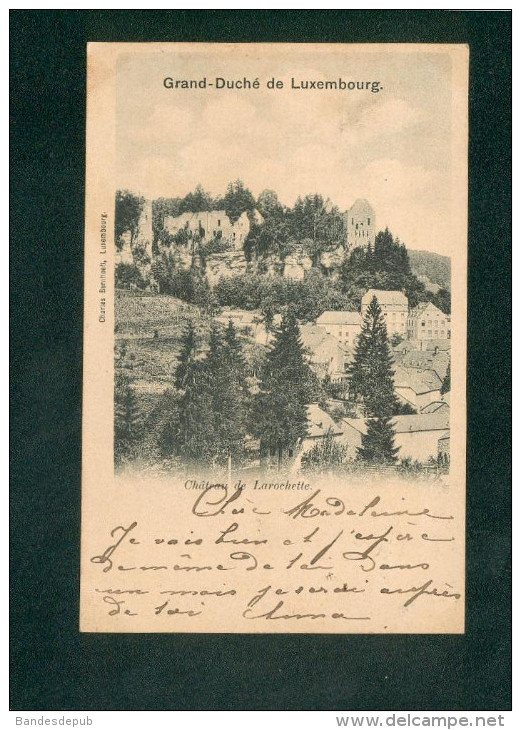 Grand-Duché de Luxembourg.
Charles Bernhoeft, Luxembourg.
Château de Larochette.
Chère Madeleine
Je vais bien et j'espère
de même de toi Dans
un mois je serai auprès
de toi Anna
Bandesdepub
www.delcampe.net